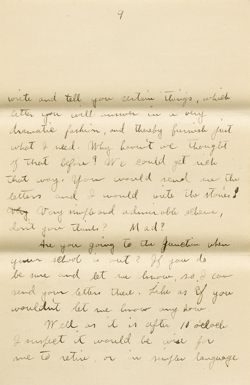 9
write and tell you certain things, which
letter you will answer in a very
dramatic fashion, and thereby furnish just
what I need. Why haven't we thought
of that before? We could get rich
that way. You would send me the
letters and I would write the stories!
Very and admirable scheme,
don't you think? Mad?
Are you going to the Junction when
your school is out? If you do
be sure and let me know, so I can
send your letters there. Like as if you
wouldn't let me know any how
Well, as it is after 10 oclock
I suspect it would be wise for
me to retire, or in simpler language